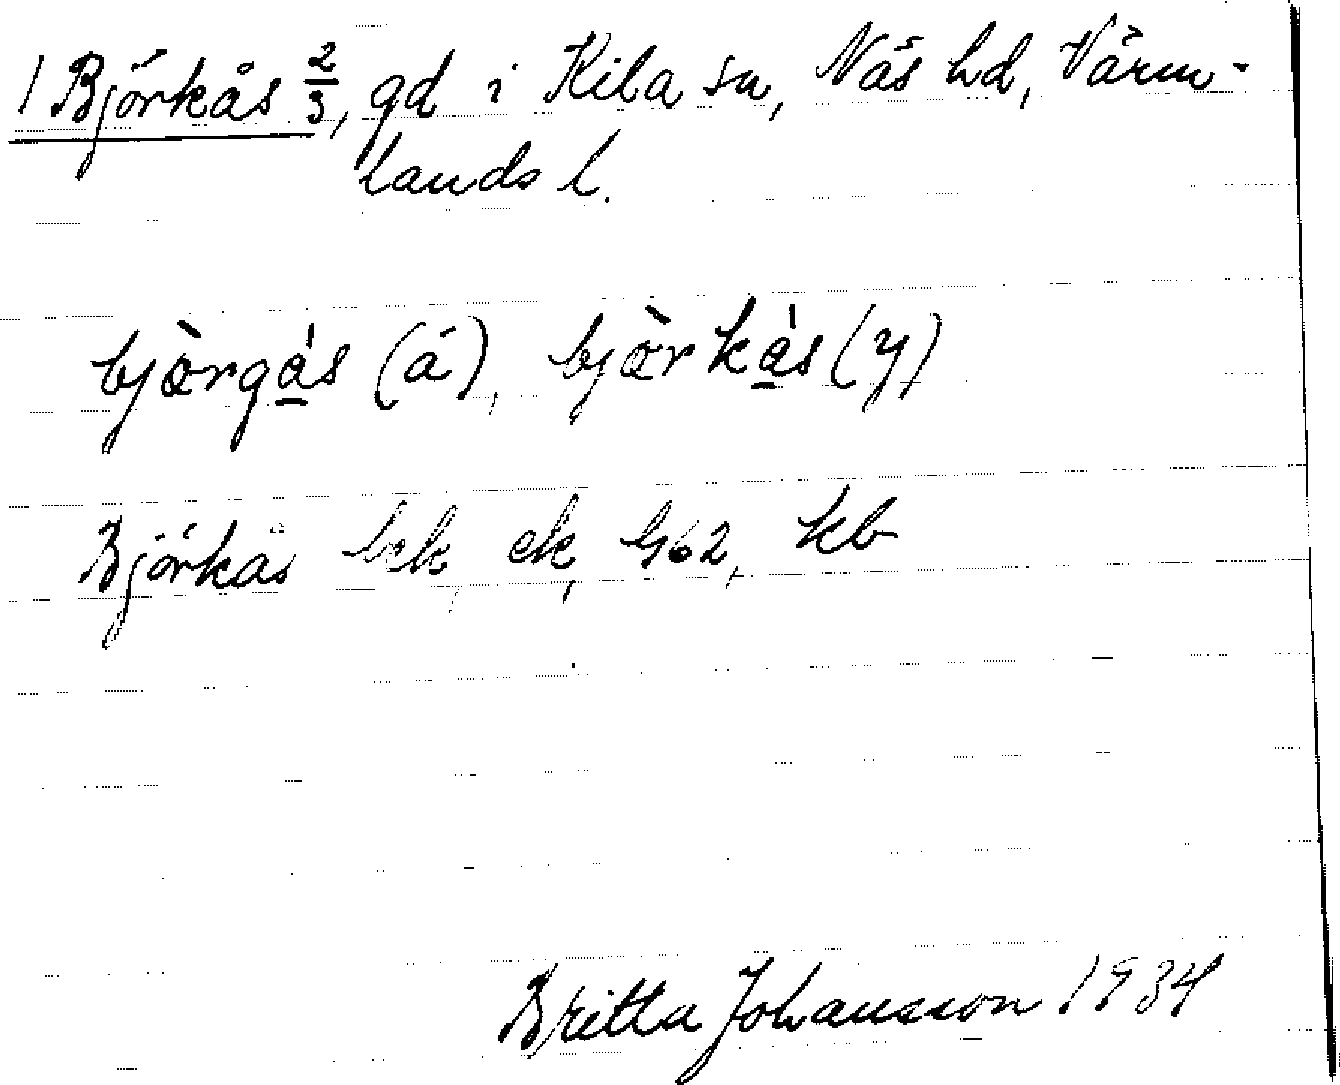 1 Björkås 2/3, gd i Kila sn, Näs hd, Värm-
lands l.
bjœ̀rga̲̍s (ä), bjœ̀rka̲̍s (y)
Björkås bck, ek, G62, kb
Britta Johansson 1934